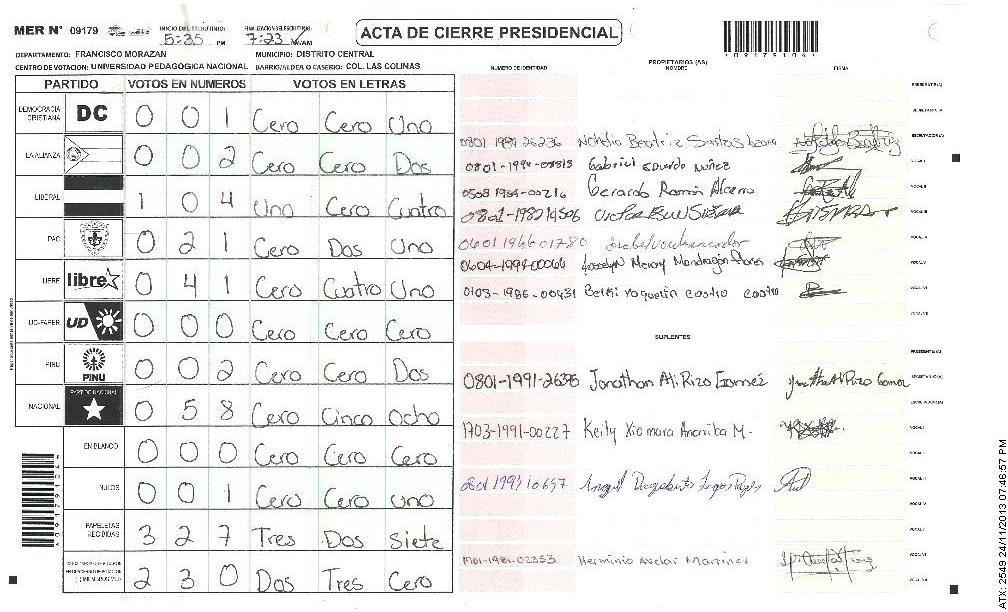 MER N° 09179 INICIO DEL ESCRUTINIO: 5:35 PM FINALIZACION DEL ESCRUTINIO: 7:23 /AM
ACTA DE CIERRE PRESIDENCIAL
*09179106*
DEPARTAMENTO: FRANCISCO MORAZAN MUNICIPIO: DISTRITO CENTRAL
CENTRO DE VOTACION: UNIVERSIDAD PEDAGÓGICA NACIONAL BARRIO/ALDEA O CASERIO: COL. LAS COLINAS
PARTIDO VOTOS EN NUMEROS VOTOS EN LETRAS
DEMOCRACIA CRISTIANA DC 0 0 1 Cero Cero Uno
LA ALIANZA 0 0 2 Cero Cero Dos
LIBERAL 1 0 4 Uno Cero Cuatro
PAC 0 2 1 Cero Dos Uno
LIBRE libre 0 4 1 Cero Cuatro Uno
UD-FAPER UD 0 0 0 Cero Cero Cero
PINU PINU 0 0 2 Cero Cero Dos
NACIONAL PARTIDO NACIONAL 0 5 8 Cero Cinco Ocho
EN BLANCO 0 0 0 Cero Cero Cero
NULOS 0 0 1 Cero Cero uno
PAPELETAS RECIBIDAS 3 2 7 Tres Dos Siete
2 3 0 Dos Tres Cero
NUMERO DE IDENTIDAD PROPIETARIOS (AS) NOMBRE FIRMA
PRESIDENTE(A)
SECRETARIO(A)
Beatriz Santos ESCRUTADOR(A)
Gabriel Eduardo Nuñez VOCAL I
0508 1984-00216 Gerardo Ramón VOCAL II
VOCAL III
0601 1966 01780
0604-1994-00066 Mondragón VOCAL V
0103-1986-00431 castro castro VOCAL VI
SUPLENTES
PRESIDENTE(A)
0801-1991-26376 Jonathan Ali Rizo Gomez SECRETARIO(A)
ESCRUTADOR(A)
1703-1991-00227 Keily Xiomara Anariba M. VOCAL I
VOCAL II
VOCAL III
VOCAL IV
VOCAL V
1701-1981-02353 Herminio Avelar Martinez VOCAL VI
ATX: 2549 24/11/2013 07:46:57 PM